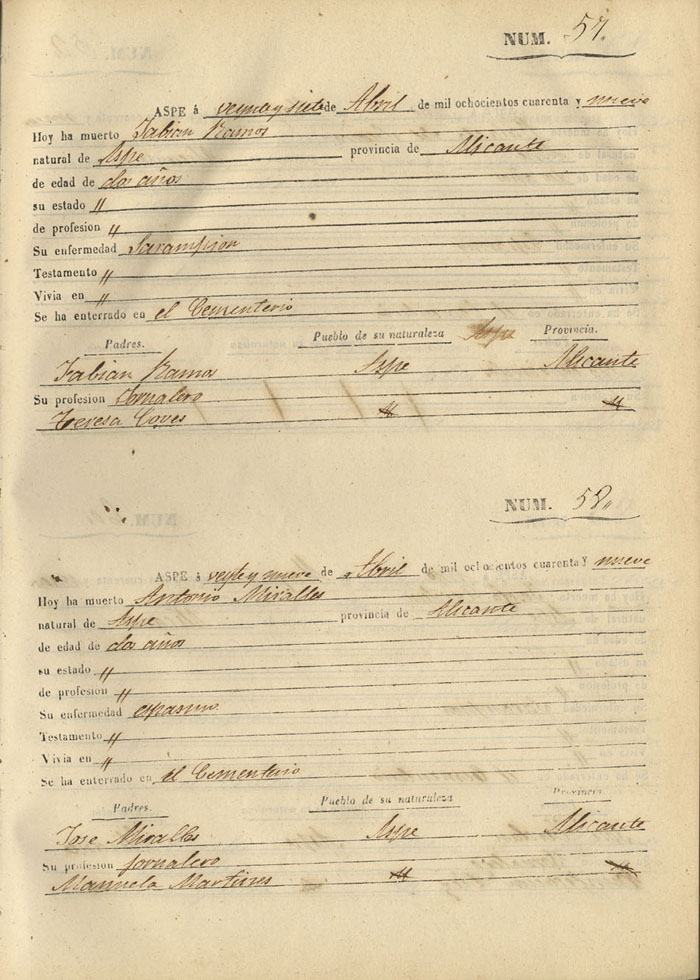 NUM. 57.
ASPE á veynte y siete de Abril de mil ochocientos cuarenta y nueve
Hoy ha muerto Fabian Ramos
natural de Aspe provincia de Alicante
de edad de dos años
su estado "
de profesion "
Su enfermedad Sarampion
Testamento "
Vivia en "
Se ha enterrado en el Cementerio
Padres. Pueblo de su naturaleza Aspe Provincia.
Fabian Ramos Aspe Alicante
Su profesion Jornalero
Teresa Coves " "
NUM. 58"
ASPE á veynte y nueve de Abril de mil ochocientos cuarenta y nueve
Hoy ha muerto Antonio Miralles
natural de Aspe provincia de Alicante
de edad de dos años
su estado "
de profesion "
Su enfermedad espasmo
Testamento "
Vivia en "
Se ha enterrado en el Cementerio
Padres. Pueblo de su naturaleza Provincia
Jose Miralles Aspe Alicante
Su profesion Jornalero
Manuela Martines " "